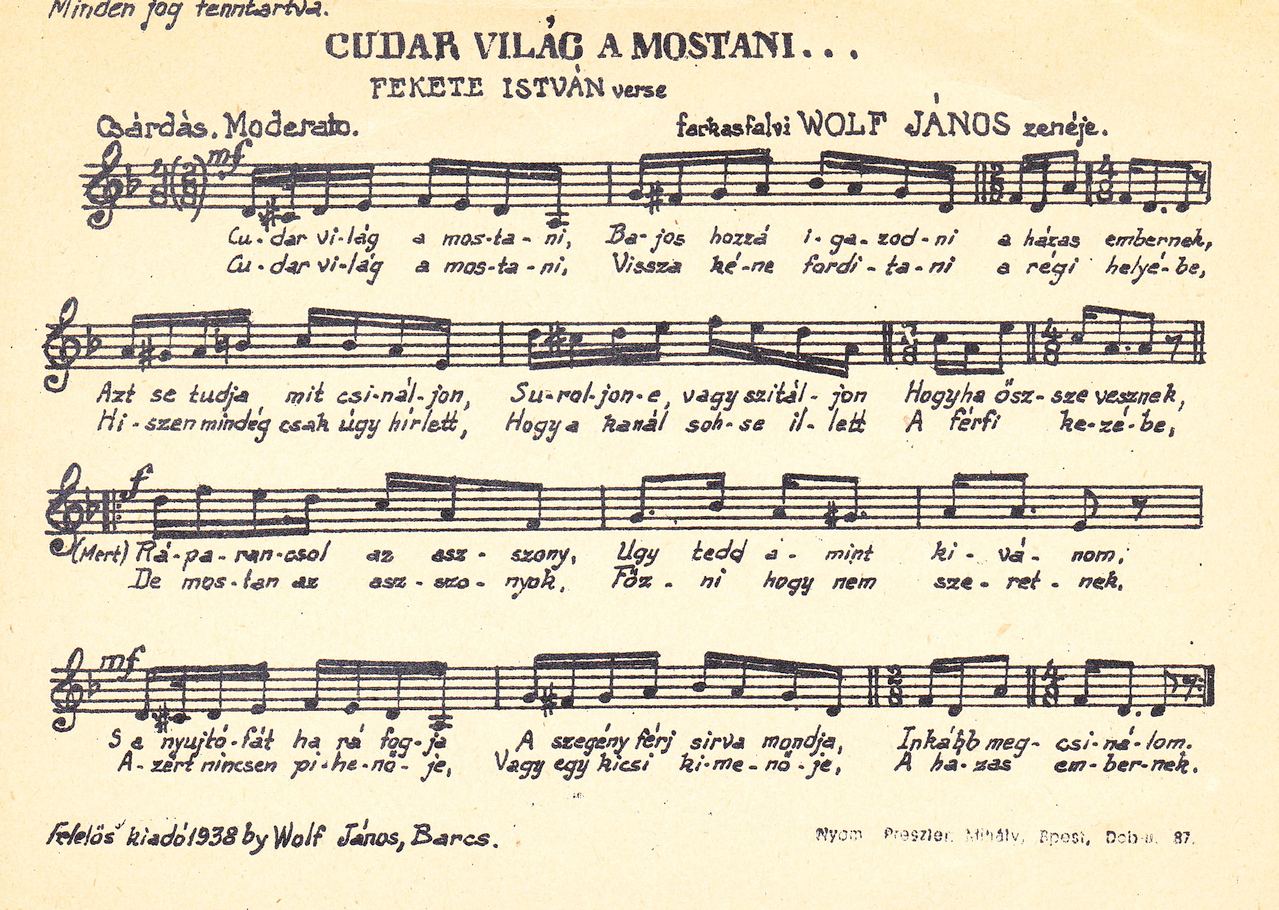 Minden jog fenntartva.
CUDAR VILÁG A MOSTANI...
FEKETE ISTVÁN verse
Csárdás. Moderato.
farkasfalvi WOLF JÁNOS zenéje.
mf
Cu-dar vi-lág a mos-ta-ni, Ba-jos hozzá i-ga-zod-ni a házas embernek,
Cu-dar vi-lág a mos-ta-ni, Vissza ké-ne fordi-ta-ni a régi helyé-be,
Azt se tudja mit csi-nál-jon, Su-rol-jon-e, vagy szitál-jon Hogyha ősz-sze vesznek,
Hi-szen mindég csak úgy hírlett, Hogy a kanál soh-se il-lett A férfi ke-zé-be,
f
(Mert) Rá-pa-ran-csol az asz-szony, Ugy tedd a-mint ki-vá-nom,
De mos-tan az asz-szo-nyok, Főz-ni hogy nem sze-ret-nek,
mf
S a nyujtó-fát ha rá fog-ja A szegény férj sirva mondja, Inkább meg-csi-ná-lom.
A-zért nincsen pi-he-nő-je, Vagy egy kicsi ki-me-nő-je, A ha-zas em-ber-nek.
Felelős kiadó 1938 by Wolf János, Barcs.
Nyom Preszler Mihály, Bpest, Dob-u. 87.